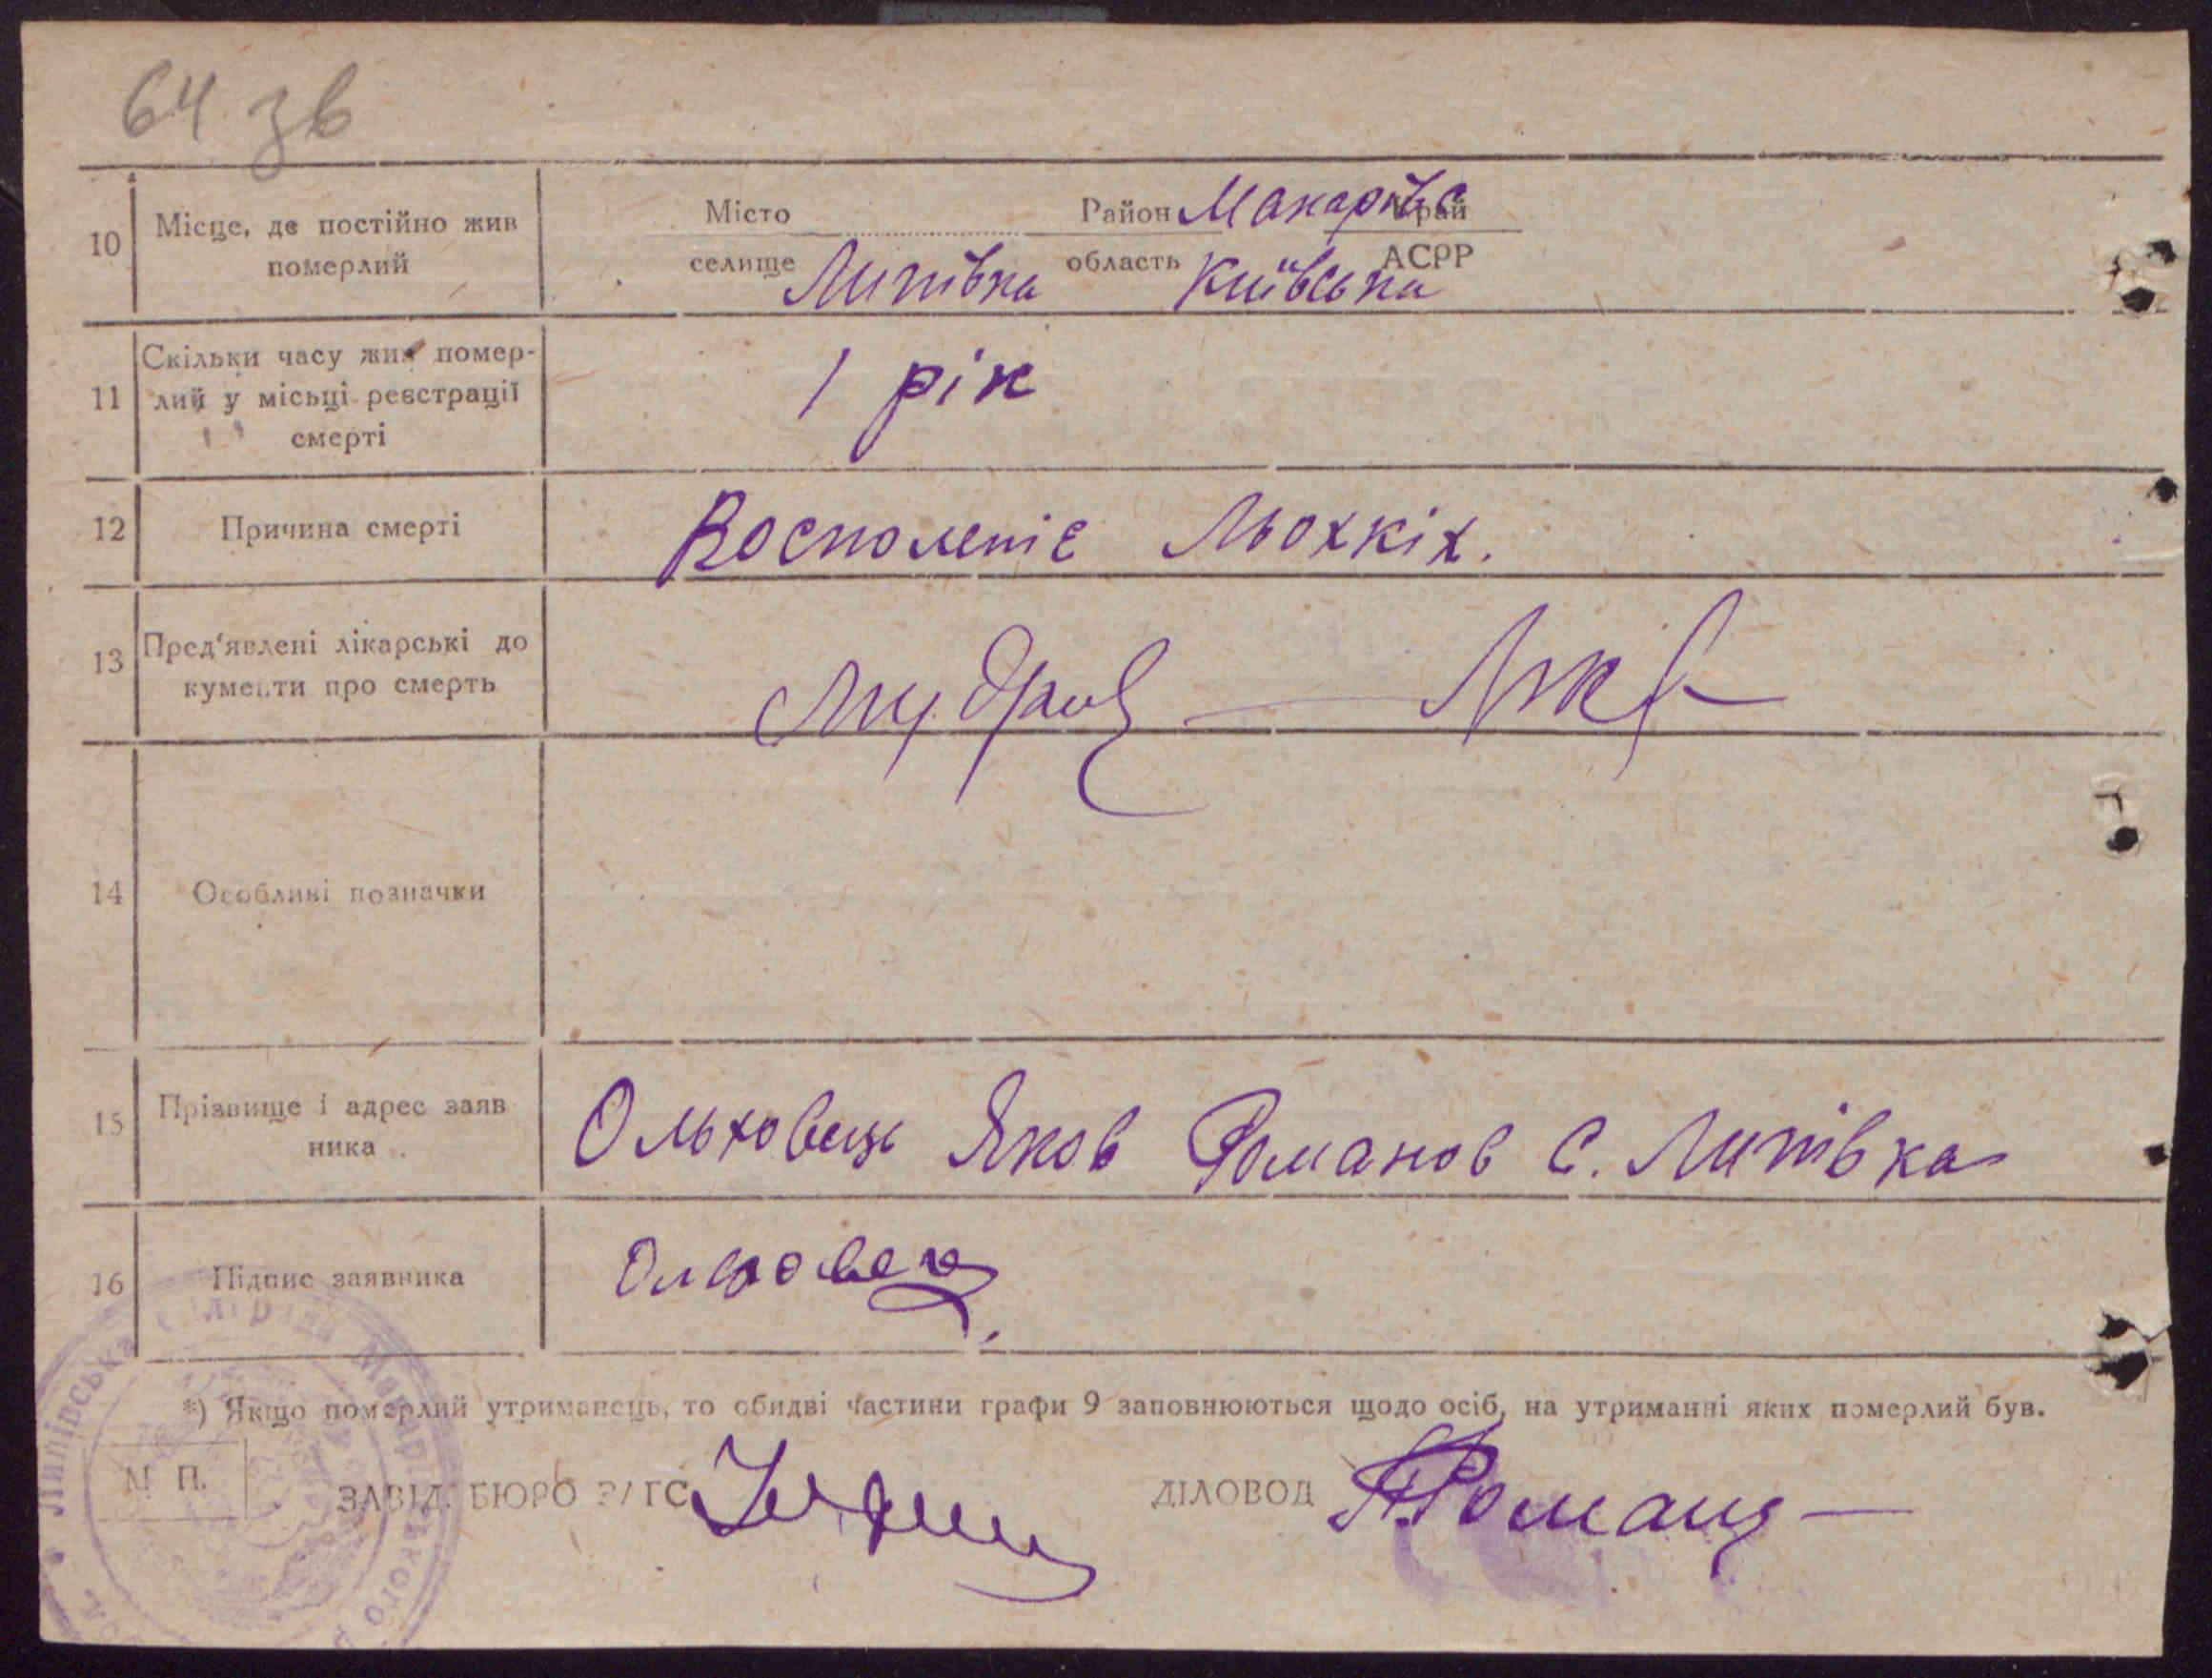 64 зв
10 Місце, де постійно жив померлий
Місто Район Макарівс Край
селище Липівка область Київська АСРР
11 Скільки часу жив помер-
лий у місьці реєстрації
смерті
1 рік
12 Причина смерті
Восполеніє Льохкіх.
13 Пред'явлені лікарські до
кументи про смерть
14 Особливі позначки
15 Прізвище і адрес заяв
ника
Ольховець Яков Романов С. Липівка
16 Підпис заявника
Ольховец
*) Якщо померлий утриманець, то обидві частини графи 9 заповнюються щодо осіб, на утриманні яких померлий був.
М. П.
ЗАВІД. БЮРО ЗАГС
ДІЛОВОД
Липівська Макарівського